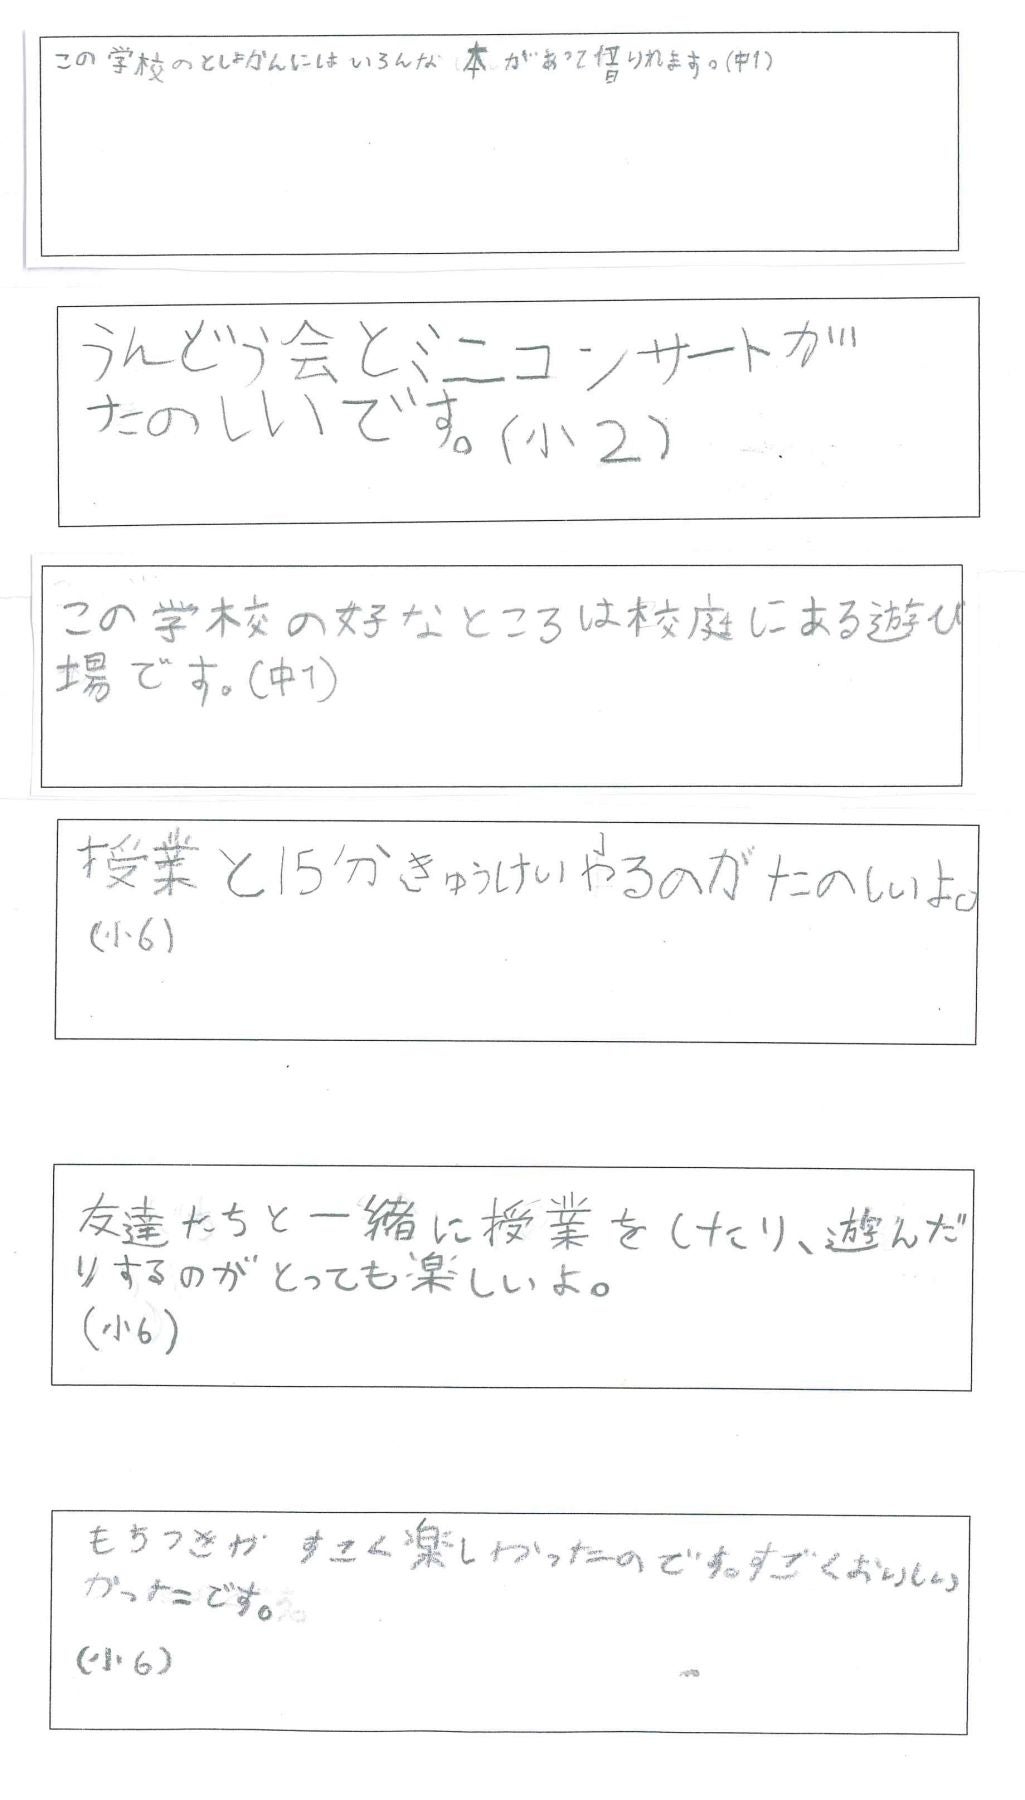 この学校のとしょかんにはいろんな本があって借りれます。(中1)
うんどう会とミニコンサートが
たのしいです。(小2)
この学校の好なところは校庭にある遊び
場です。(中1)
授業と15分きゅうけいやるのがたのしいよ。
(小6)
友達たちと一緒に授業をしたり、遊んだ
りするのがとっても楽しいよ。
(小6)
もちつきが すごく楽しかったのです。すごくおいしい
かったです。
(小6)